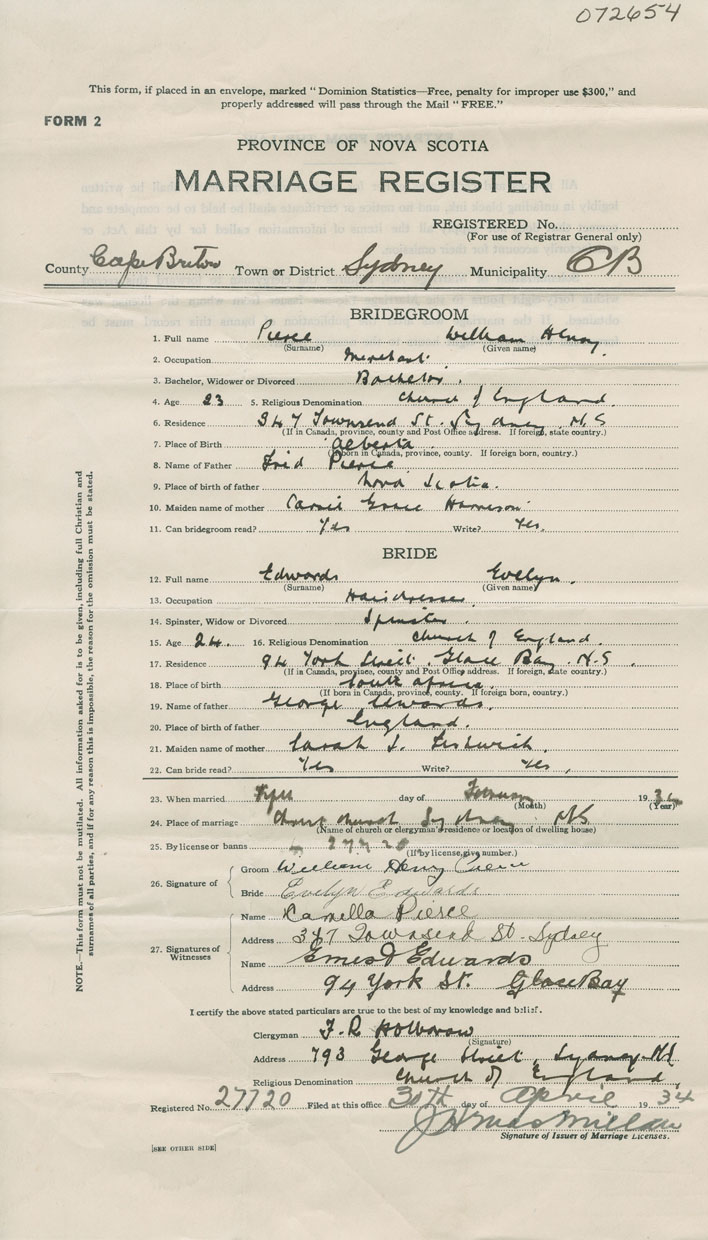 072654
This form, if placed in an envelope, marked "Dominion Statistics—Free, penalty for improper use $300," and
properly addressed will pass through the Mail "FREE."
FORM 2
PROVINCE OF NOVA SCOTIA
MARRIAGE REGISTER
REGISTERED No.
(For use of Registrar General only)
County Cape Breton Town or District Sydney Municipality CB
BRIDEGROOM
1. Full name Pierce William Henry
(Surname) (Given name)
2. Occupation Merchant
3. Bachelor, Widower or Divorced Bachelor.
4. Age 23 5. Religious Denomination Church of England
6. Residence 347 Townsend St. Sydney N.S
(If in Canada, province, county and Post Office address. If foreign, state country.)
7. Place of Birth Alberta
(If born in Canada, province, county. If foreign born, country.)
8. Name of Father Fred Pierce
9. Place of birth of father Nova Scotia.
10. Maiden name of mother Grace Harrison
11. Can bridegroom read? Yes Write? Yes.
BRIDE
12. Full name Edwards Evelyn.
(Surname) (Given name)
13. Occupation Hairdresser
14. Spinster, Widow or Divorced Spinster
15. Age 24. 16. Religious Denomination Church of England
17. Residence 94 York Street, Glace Bay. N.S
(If in Canada, province, county and Post Office address. If foreign, state country.)
18. Place of birth South Africa.
(If born in Canada, province, county. If foreign born, country.)
19. Name of father George Edwards.
20. Place of birth of father England.
21. Maiden name of mother Sarah J.
22. Can bride read? Yes Write? Yes,
23. When married day of February 1934
(Month) (Year)
24. Place of marriage Christ Church Sydney NS
(Name of church or clergyman's residence or location of dwelling house)
25. By license or banns 27720
(If by license, give number.)
26. Signature of
Groom William Henry Pierce
Bride Evelyn Edwards
27. Signatures of Witnesses
Name Camella Pierce
Address 347 Townsend St. Sydney
Name Ernest Edwards
Address 94 York St. Glace Bay
I certify the above stated particulars are true to the best of my knowledge and belief.
Clergyman F. R Holborow
(Signature)
Address 793 George Street, Sydney NS
Religious Denomination Church of England,
Registered No. 27720 Filed at this office 30th day of April 1934
J H MacMillan
Signature of Issuer of Marriage Licenses.
[SEE OTHER SIDE]
NOTE.—This form must not be mutilated. All information asked for is to be given, including full Christian and
surnames of all parties, and if for any reason this is impossible, the reason for the omission must be stated.